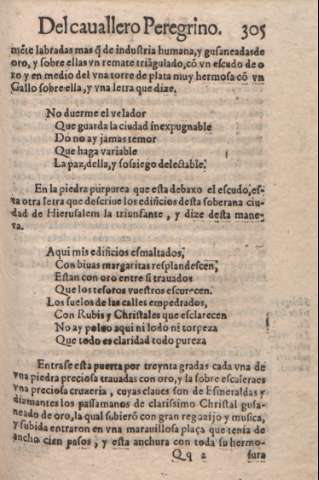 Del cauallero Peregrino. 305
mẽte labradas mas q̃ de industria humana, y gusaneadas de
oro, y sobre ellas vn remate triãgulado, cõ vn escudo de o
ro y en medio del vna torre de plata muy hermosa cõ vn
Gallo sobre ella, y vna letra que dize.
No duerme el velador
Que guarda la ciudad inexpugnable
Do no ay jamas temor
Que haga variable
La paz, della, y sosiego delectable.
En la piedra purpurea que esta debaxo el escudo, es-
ta otra letra que descriue los edificios desta soberana ciu
dad de Hierusalem la triunfante, y dize desta mane-
ra.
Aqui mis edificios esmaltados,
Con biuas margaritas resplandescen,
Estan con oro entre si trauados
Que los tesoros vuestros escurecen.
Los suelos de las calles empedrados,
Con Rubis y Christales que esclarecen
No ay poluo aqui ni lodo ni torpeza
Que todo es claridad todo pureza
Entrase esta puerta por treynta gradas cada vna de
vna piedra preciosa trauadas con oro, y la sobre escalera es
vna preciosa cruzeria, cuyas claues son de Esmeraldas y
diamantes los passamanos de clarissimo Christal gusa-
neado de oro, la qual subierõ con gran regozijo y musica,
y subida entraron en vna marauillosa plaça que tenia de
ancho cien passos, y esta anchura con toda su hermo-
Qq 2 sura